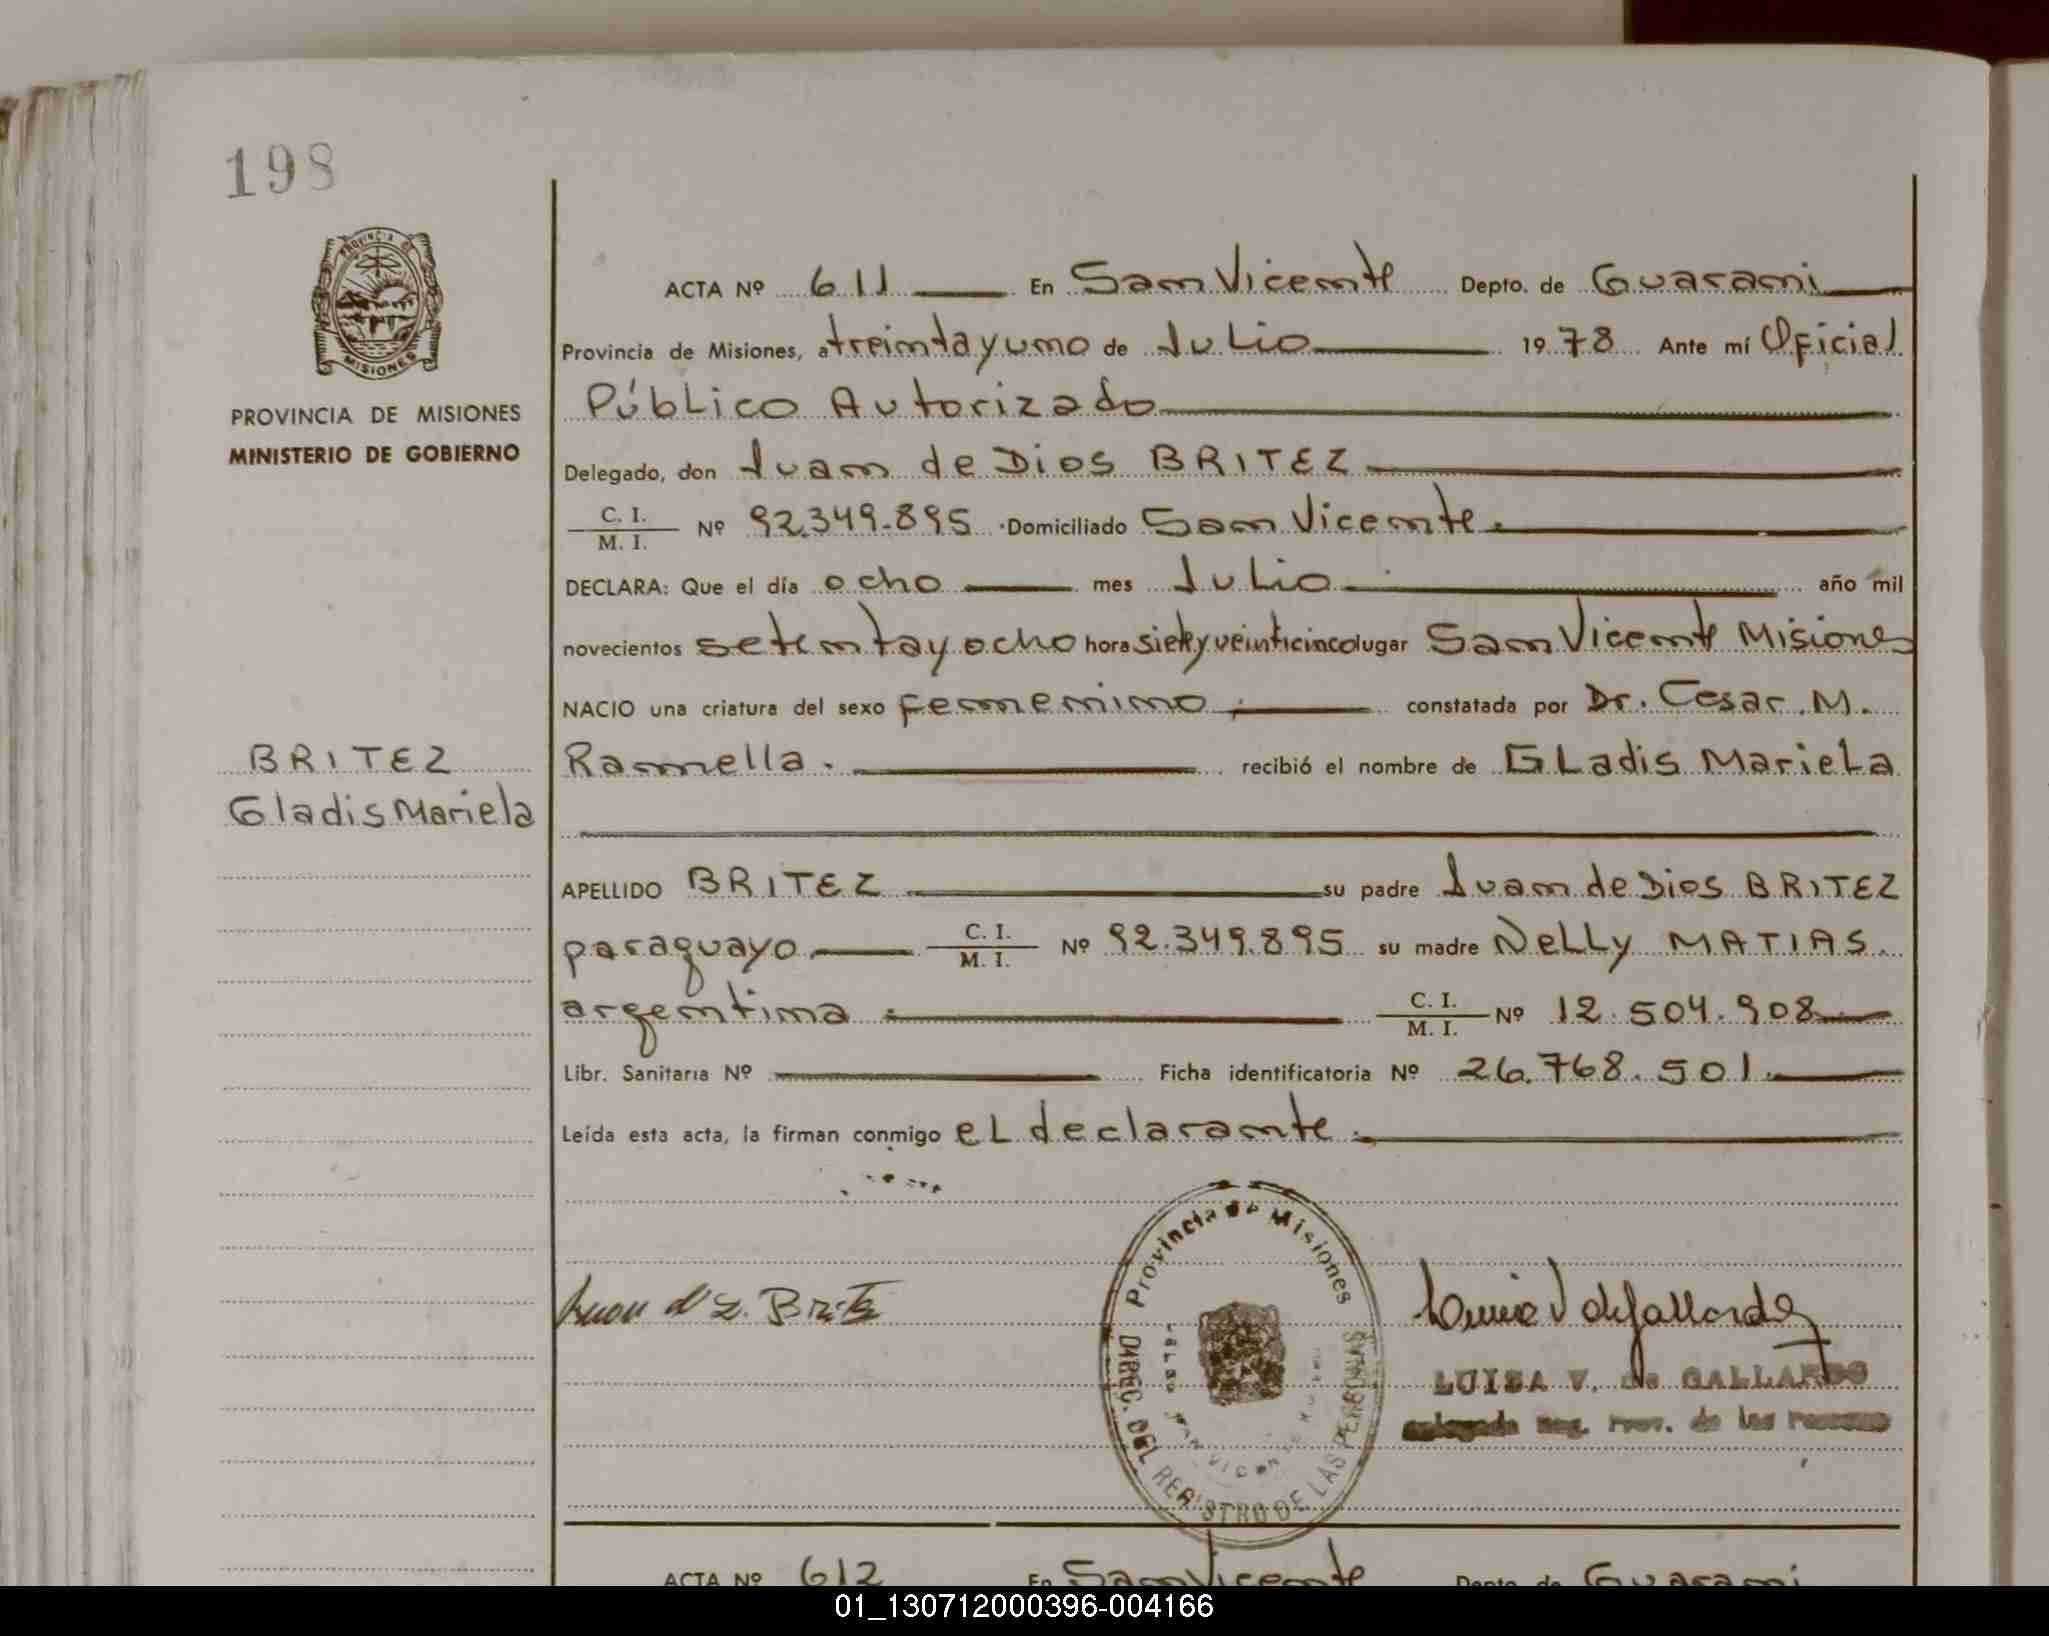 198
PROVINCIA DE MISIONES
PROVINCIA DE MISIONES
MINISTERIO DE GOBIERNO
BRITEZ
Gladis Mariela
ACTA Nº 611 En San Vicente Depto. de Guarani
Provincia de Misiones, a treintayuno de Julio 1978 Ante mí Oficial
Público Autorizado
Delegado, don Juan de Dios BRITEZ
C. I.
M. I. Nº 92.349.895 Domiciliado San Vicente.
DECLARA: Que el día ocho mes Julio año mil
novecientos setentayocho hora sieteyveinticinco lugar San Vicente Misiones
NACIO una criatura del sexo femenino constatada por Dr. Cesar M.
Ramella. recibió el nombre de GLadis MarieLa
APELLIDO BRITEZ su padre Juan de Dios BRITEZ
paraguayo C. I.
M. I. Nº 92.349.895 su madre NeLLy MATIAS.
argentina C. I.
M. I. Nº 12.504.908
Libr. Sanitaria Nº Ficha identificatoria Nº 26.768.501.
Leída esta acta, la firman conmigo eL declarante.
Juan d D. Britez
Provincia de Misiones
DIREC. DEL REGISTRO DE LAS PERSONAS
Luisa V de Gallardo
LUISA V. de GALLARDO
Delegada Reg. Prov. de las Personas
ACTA Nº 612 En San Vicente Depto. de Guarani
01_130712000396-004166